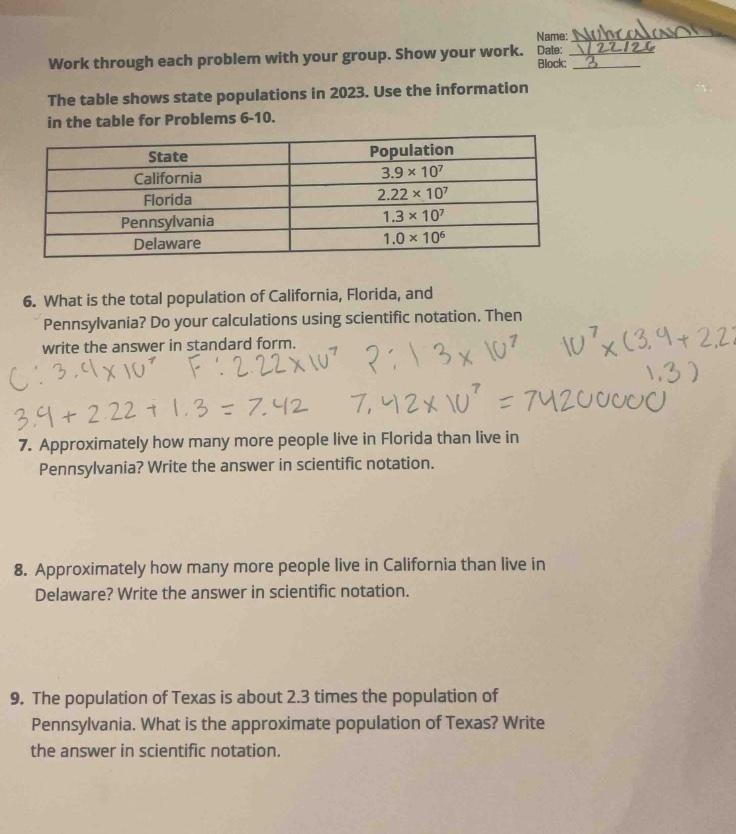 Name:
Date: 1/22/26
Block: 3
Work through each problem with your group. Show your work.
The table shows state populations in 2023. Use the information
in the table for Problems 6-10.
State Population
California 3.9 × 10⁷
Florida 2.22 × 10⁷
Pennsylvania 1.3 × 10⁷
Delaware 1.0 × 10⁶
6. What is the total population of California, Florida, and
Pennsylvania? Do your calculations using scientific notation. Then
write the answer in standard form.
C: 3.9 x 10⁷ F: 2.22 x 10⁷ P: 1.3 x 10⁷ 10⁷ x (3.9 + 2.22
1.3)
3.9 + 2.22 + 1.3 = 7.42 7.42 x 10⁷ = 74200000
7. Approximately how many more people live in Florida than live in
Pennsylvania? Write the answer in scientific notation.
8. Approximately how many more people live in California than live in
Delaware? Write the answer in scientific notation.
9. The population of Texas is about 2.3 times the population of
Pennsylvania. What is the approximate population of Texas? Write
the answer in scientific notation.